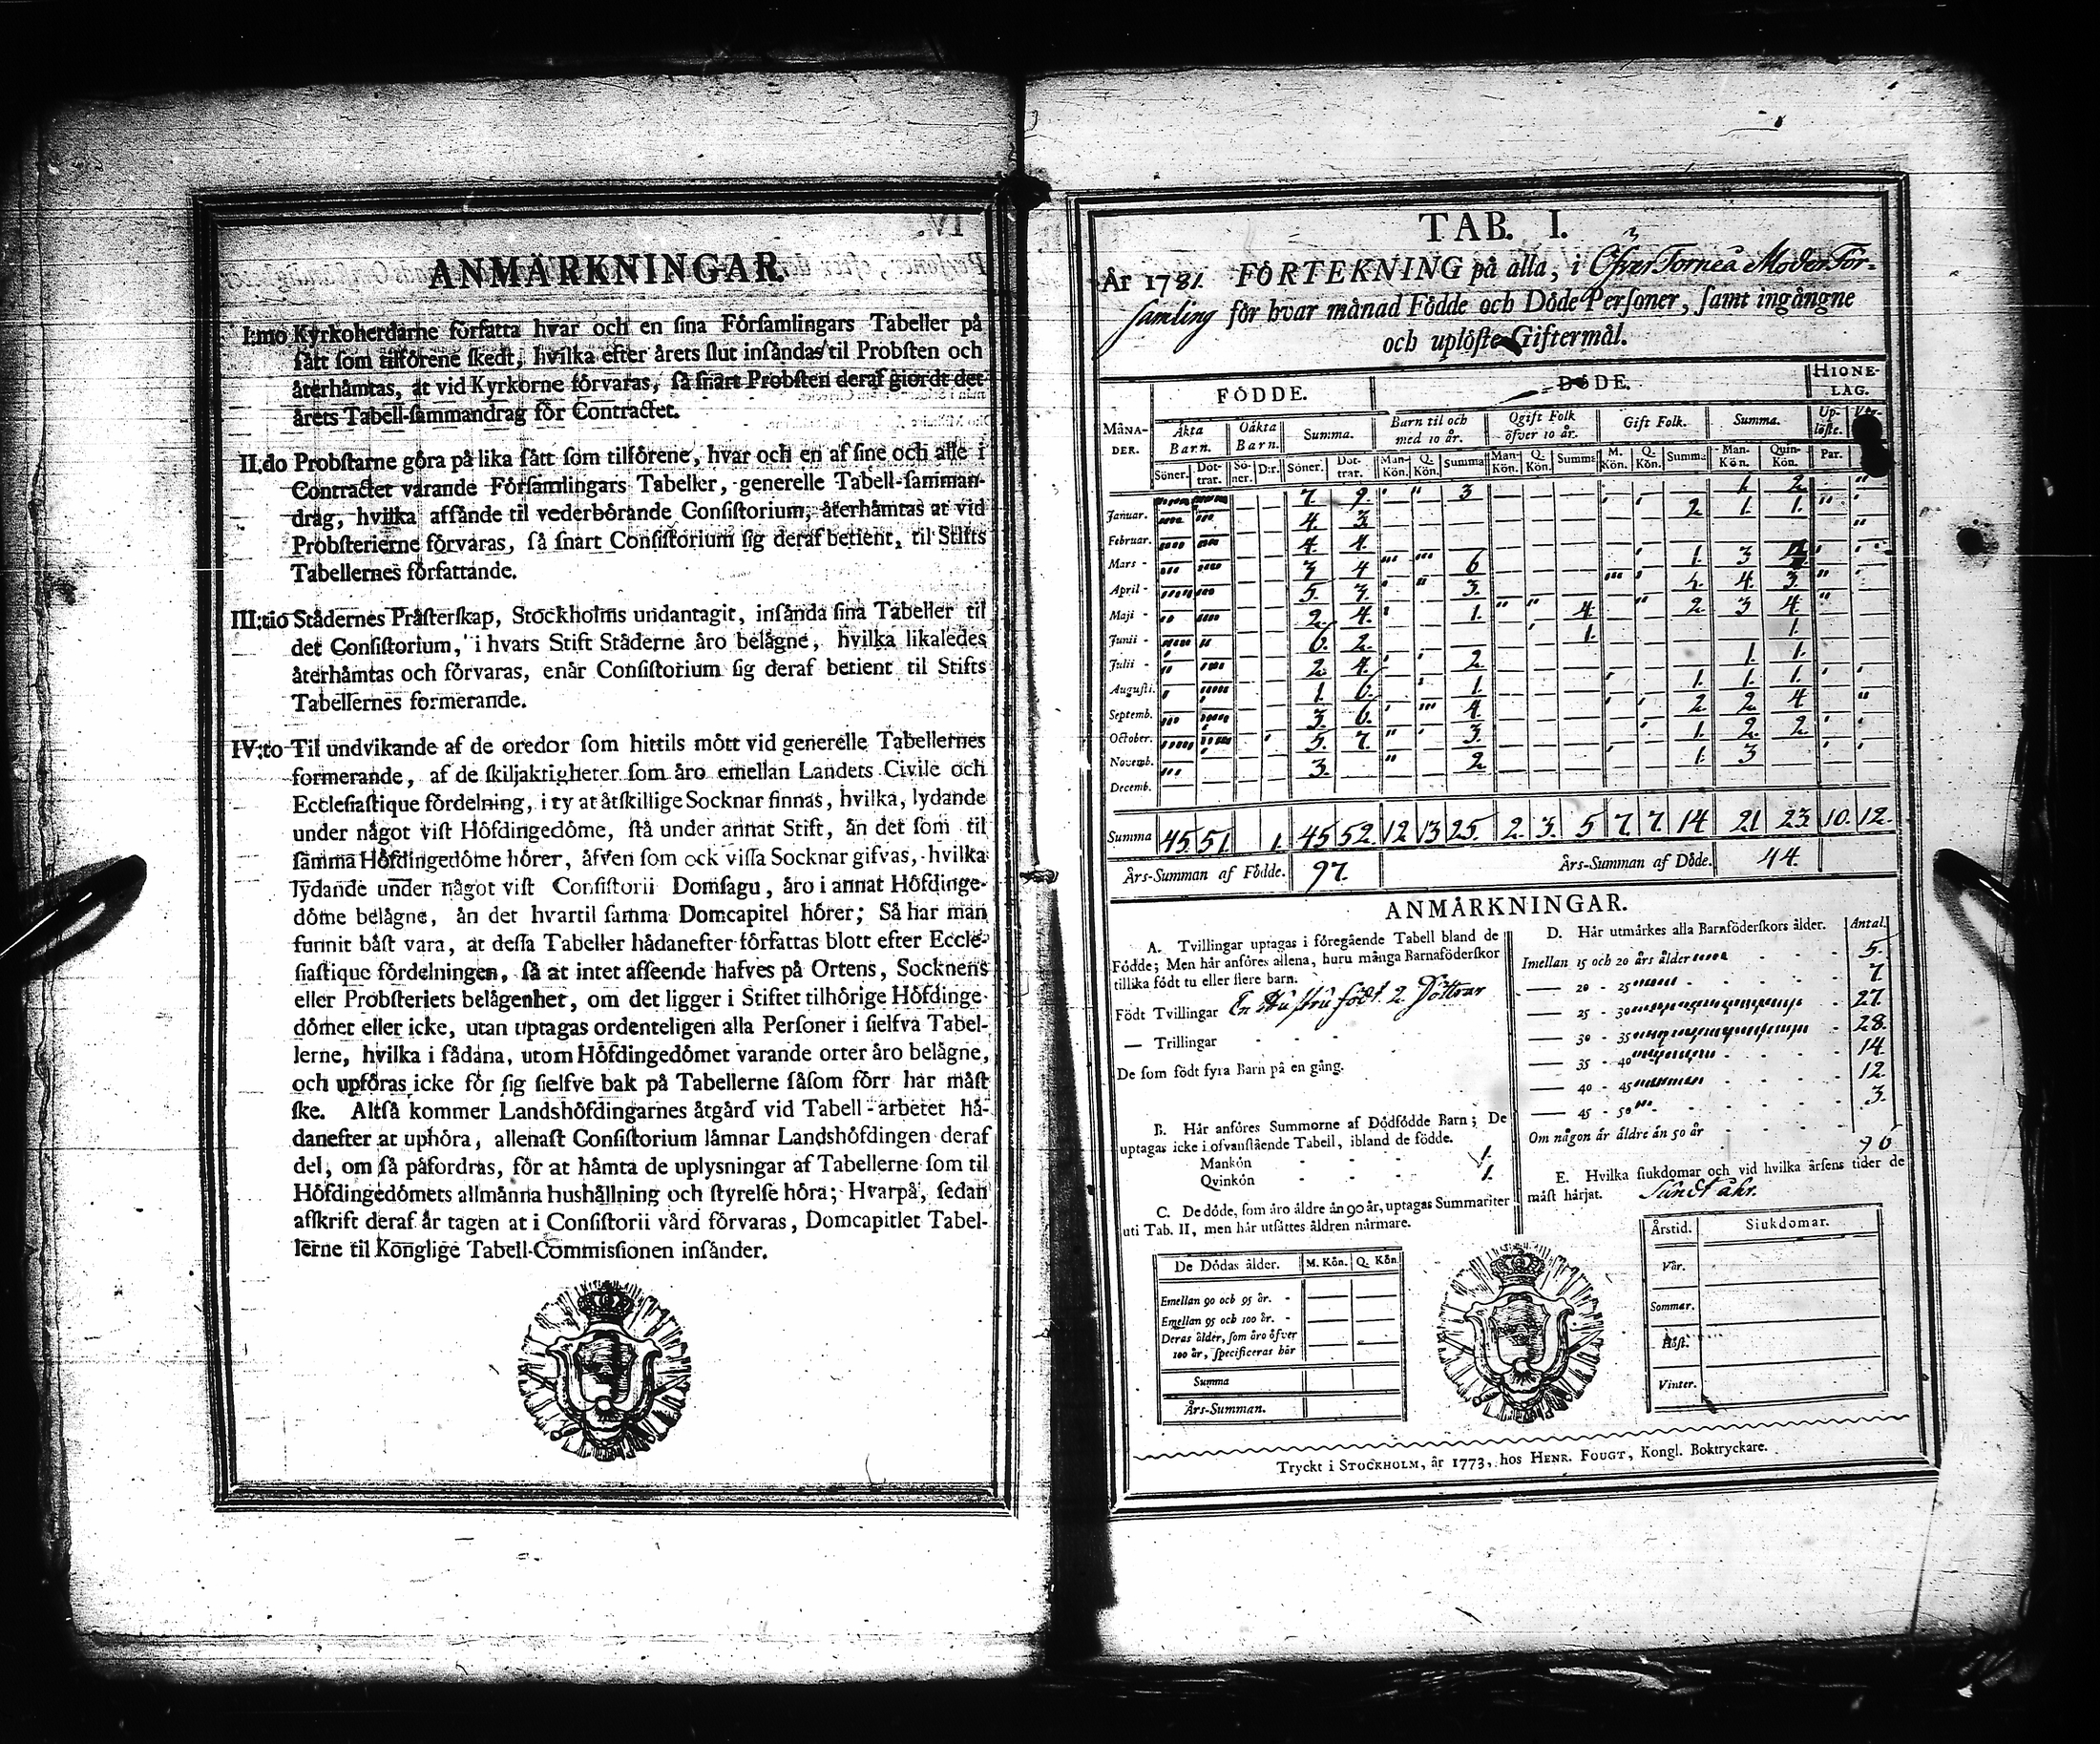 ANMÄRKNINGAR.
I:mo Kyrkoherdarne författa hvar och en ſina Förſamlingars Tabeller på
ſått ſom tilförene ſkedt, hvilka efter årets ſlut inſåndas til Probſten och
återhåmtas, at vid Kyrkorne förvaras, ſå ſnart Probſten deraf giordt det
årets Tabell-ſammandrag för Contractet.
II:do Probſtarne göra på lika ſått ſom tilförene, hvar och en af ſine och alle i
Contractet varande Förſamlingars Tabeller, generelle Tabell-ſamman-
drag, hvilka afſånde til vederbörande Conſiſtorium, återhåmtas at vid
Probſterierne förvaras, ſå ſnart Conſiſtorium ſig deraf betient, til Stifts
Tabellernes författande.
III:tio Städernes Pråſterſkap, Stockholms undantagit, inſånda ſina Tabeller til
det Conſiſtorium, i hvars Stift Städerne åro belågne, hvilka likaledes
återhåmtas och förvaras, enår Conſiſtorium ſig deraf betient til Stifts
Tabellernes formerande.
IV:to Til undvikande af de oredor ſom hittils mött vid generelle Tabellernes
formerande, af de ſkiljaktigheter ſom åro emellan Landets Civile och
Eccleſiaſtique fördelning, i ty at åtſkillige Socknar finnas, hvilka, lydande
under något viſt Höfdingedöme, ſtå under annat Stift, ån det ſom til
ſamma Höfdingedöme hörer, åfven ſom ock viſſa Socknar gifvas, hvilka
lydande under något viſt Conſiſtorii Domſagu, åro i annat Höfdinge-
döme belågne, ån det hvartil ſamma Domcapitel hörer; Så har man
funnit båſt vara, at deſſa Tabeller hådanefter författas blott efter Eccle-
ſiaſtique fördelningen, ſå at intet afſeende hafves på Ortens, Socknens
eller Probſteriets belågenhet, om det ligger i Stiftet tilhörige Höfdinge-
dömet eller icke, utan uptagas ordenteligen alla Perſoner i ſielfva Tabel-
lerne, hvilka i ſådana, utom Höfdingedömet varande orter åro belågne,
och upföras icke för ſig ſielfve bak på Tabellerne ſåſom förr har måſt
ſke. Altſå kommer Landshöfdingarnes åtgård vid Tabell-arbetet hå-
danefter at uphöra, allenaſt Conſiſtorium låmnar Landshöfdingen deraf
del, om ſå påfordras, för at håmta de uplysningar af Tabellerne ſom til
Höfdingedömets allmånna hushållning och ſtyrelſe höra; Hvarpå, ſedan
afſkrift deraf år tagen at i Conſiſtorii vård förvaras, Domcapitlet Tabel-
lerne til Konglige Tabell-Commisſionen inſånder.
TAB. I.
År 1781. FÖRTEKNING på alla, i Öfver Torneå Moder För-
samling för hvar månad Födde och Döde Perſoner, ſamt ingångne
och uplöſte Giftermål.
FÖDDE. DÖDE. HIONE-
LAG.
MÅNA-
DER. Äkta
Barn. Oäkta
Barn. Summa. Barn til och
med 10 år. Ogift Folk
öfver 10 år. Gift Folk. Summa. Up-
löſte.
Söner. Döt-
trar. Sö-
ner. D:r. Söner. Döt-
trar. Man-
Kön. Q.
Kön. Summa Man-
Kön. Q.
Kön. Summa M.
Kön. Q.
Kön. Summa Man-
Kön. Quin-
Kön. Par.
Januar. 7. 9. 3 1. 2.
Februar. 4. 3. 2. 1. 1.
Mars 4. 4.
April 3 4 6 1. 3
Maji 5. 3. 3. 4. 3.
Junii 2. 4. 1. 4. 2 3 4.
Julii 6. 2. 1. 1.
Auguſti. 2. 4. 2 1. 1.
Septemb. 1. 6. 1. 1. 1. 1.
October. 3 6. 4. 2 2. 4
Novemb. 5. 7. 3. 1. 2. 2.
Decemb. 3. 2 1. 3
Summa 45 51 1. 45 52 12 13 25. 2. 3. 5 7. 7. 14 21 23. 10. 12.
Års-Summan af Födde. 97. Års-Summan af Döde. 44.
ANMÄRKNINGAR.
A. Tvillingar uptagas i föregående Tabell bland de
Födde; Men hår anföres allena, huru många Barnaföderſkor
tillika födt tu eller flere barn.
Födt Tvillingar En Hustru födt 2 Döttrar
— Trillingar
De ſom födt fyra Barn på en gång.
B. Hår anföres Summorne af Dödfödde Barn; De
uptagas icke i ofvanſtående Tabell, ibland de födde.
Mankön 1.
Qvinkön 1.
C. De döde, ſom åro åldre ån 90 år, uptagas Summariter
uti Tab. II, men hår utſåttes åldren nårmare.
De Dödas ålder. M. Kön. Q. Kön.
Emellan 90 och 95 år.
Emellan 95 och 100 år.
Deras ålder, ſom åro öfver
100 år, ſpecificeras hår
Summa
Års-Summan.
D. Hår utmårkes alla Barnföderſkors ålder. Antal.
Imellan 15 och 20 års ålder 5.
— 20 - 25 7
— 25 - 30 27.
— 30 - 35 28.
— 35 - 40 14.
— 40 - 45 12.
— 45 - 50 3.
Om någon år åldre ån 50 år
96
E. Hvilka ſiukdomar och vid hvilka årſens tider de
måſt hårjat. Sundt åhr.
Årstid. Siukdomar.
Vår.
Sommar.
Höſt.
Vinter.
Tryckt i STOCKHOLM, år 1773, hos HENR. FOUGT, Kongl. Boktryckare.